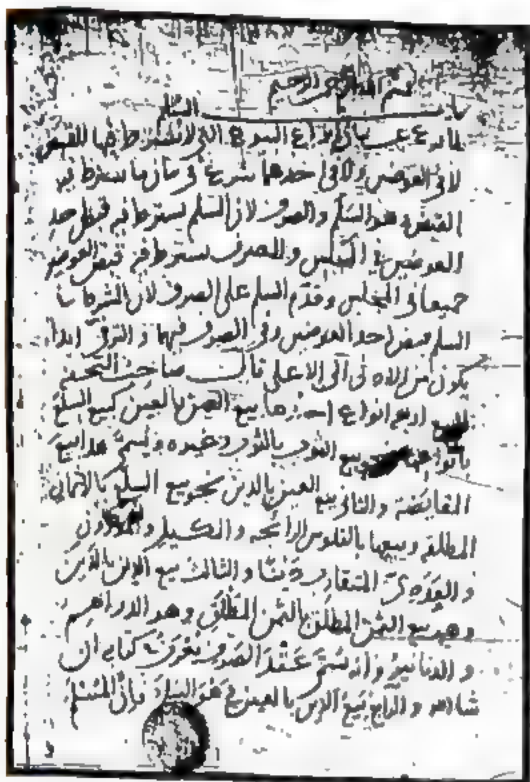 بسم الله الرحمن الرحيم
باب السلم
لما فرغ عن بيان انواع البيوع التي لا يشترط فيها القبض
لا في العوضين ولا في احدهما شرع في بيان ما يشترط فيه
القبض وهو السلم والصرف لان السلم يشترط فيه قبض احد
العوضين في المجلس وللصرف يشترط فيه قبض العوضين
جميعا في المجلس وقدم السلم على الصرف لان الشرط في
السلم قبض احد العوضين وفي الصرف فيهما والترقي ابدا
يكون من الادنى الى الاعلى قال صاحب التحفة
البيع اربعة انواع احدها بيع العين بالعين كبيع السلع
بانواعها نحو بيع الثوب بالثوب وغيره ويسمى هذا بيع
المقايضة والثاني بيع العين بالدين نحو بيع السلع بالاثمان
المطلقة وبيعها بالفلوس الرائجة والمكيل والموزون
والعددي المتقارب دينا والثالث بيع الدين بالدين
وهو بيع الثمن المطلق بالثمن المطلق وهو الدراهم
والدنانير وانه يسمى عقد الصرف يعرف كتابه ان
شا الله والرابع بيع الدين بالعين وهو السلم فان المسلم